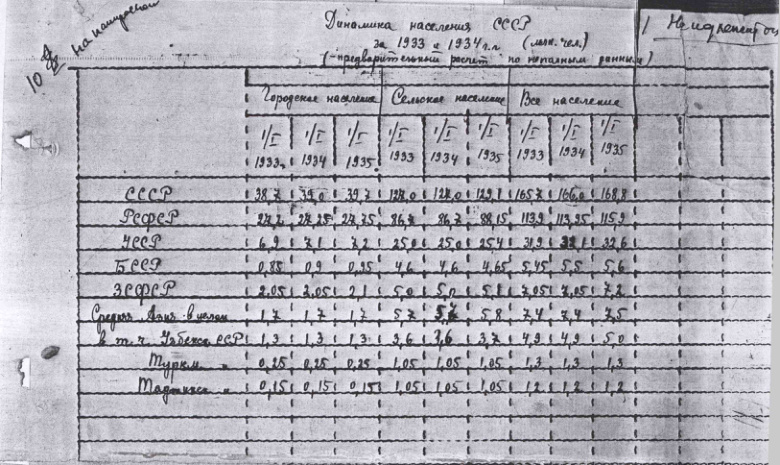 Динамика населения СССР
за 1933 и 1934 г.г. (млн. чел.)
(-предварительный расчет по неполным данным)
10
Городское население Сельское население Все население
1/I 1933 1/I 1934 1/I 1935 1/I 1933 1/I 1934 1/I 1935 1/I 1933 1/I 1934 1/I 1935
СССР 38,7 39,0 39,7 127,0 127,0 129,1 165,7 166,0 168,8
РСФСР 27,2 27,25 27,75 86,7 86,7 88,15 113,9 113,95 115,9
УССР 6,9 7,1 7,2 25,0 25,0 25,4 31,9 32,1 32,6
БССР 0,85 0,9 0,95 4,6 4,6 4,65 5,45 5,5 5,6
ЗСФСР 2,05 2,05 2,1 5,0 5,0 5,1 7,05 7,05 7,2
Средняя Азия в целом 1,7 1,7 1,7 5,7 5,7 5,8 7,4 7,4 7,5
в т.ч. Узбекс. ССР 1,3 1,3 1,3 3,6 3,6 3,7 4,9 4,9 5,0
Туркм. " 0,25 0,25 0,25 1,05 1,05 1,05 1,3 1,3 1,3
Таджикск " 0,15 0,15 0,15 1,05 1,05 1,05 1,2 1,2 1,2